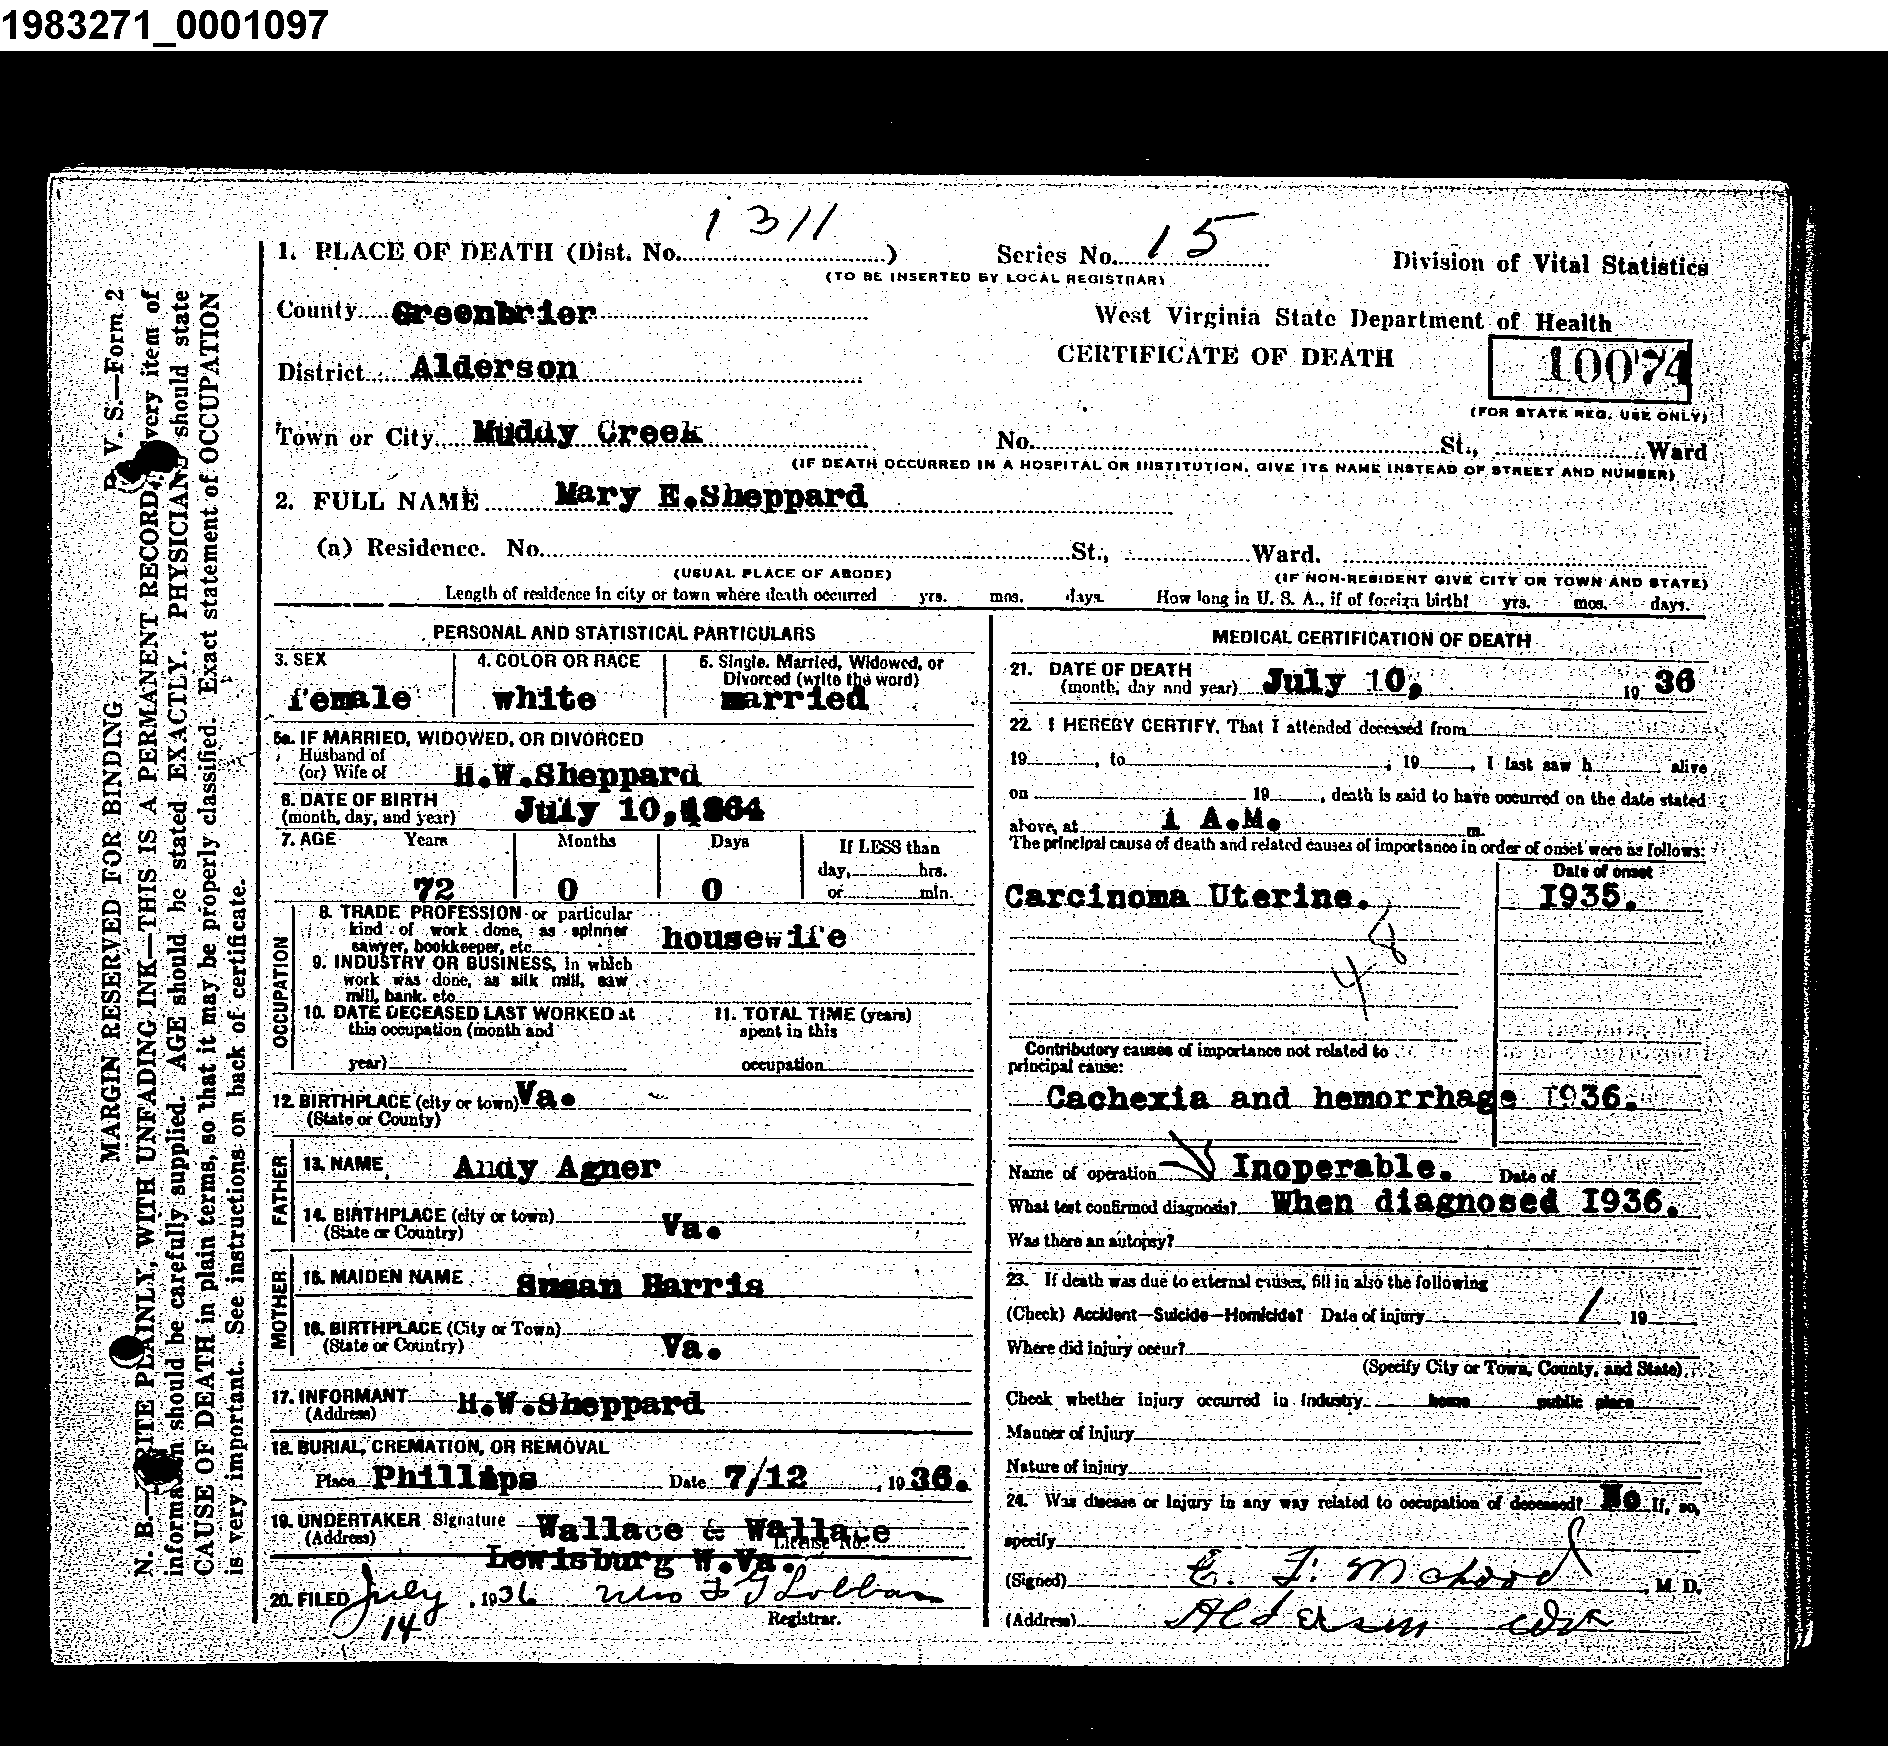 1983271_0001097
1. PLACE OF DEATH (Dist. No. 1311 ) Series No. 15 Division of Vital Statistics
(TO BE INSERTED BY LOCAL REGISTRAR)
County Greenbrier West Virginia State Department of Health
District Alderson CERTIFICATE OF DEATH 10074
(FOR STATE REG. USE ONLY)
Town or City Muddy Creek No. St., Ward
(IF DEATH OCCURRED IN A HOSPITAL OR INSTITUTION, GIVE ITS NAME INSTEAD OF STREET AND NUMBER)
2. FULL NAME Mary E.Sheppard
(a) Residence. No. St., Ward.
(USUAL PLACE OF ABODE) (IF NON-RESIDENT GIVE CITY OR TOWN AND STATE)
Length of residence in city or town where death occurred yrs. mos. days. How long in U. S. A., if of foreign birth? yrs. mos. days.
PERSONAL AND STATISTICAL PARTICULARS
3. SEX 4. COLOR OR RACE 5. Single, Married, Widowed, or
Divorced (write the word)
female white married
5a. IF MARRIED, WIDOWED, OR DIVORCED
Husband of
(or) Wife of H.W.Sheppard
6. DATE OF BIRTH
(month, day, and year) July 10,1864
7. AGE Years Months Days If LESS than
day, hrs.
72 0 0 or min.
OCCUPATION
8. TRADE PROFESSION or particular
kind of work done, as spinner
sawyer, bookkeeper, etc. housewife
9. INDUSTRY OR BUSINESS, in which
work was done, as silk mill, saw
mill, bank, etc.
10. DATE DECEASED LAST WORKED at 11. TOTAL TIME (years)
this occupation (month and spent in this
year) occupation
12. BIRTHPLACE (city or town) Va.
(State or County)
FATHER
13. NAME Andy Agner
14. BIRTHPLACE (city or town)
(State or Country) Va.
MOTHER
15. MAIDEN NAME Susan Harris
16. BIRTHPLACE (City or Town)
(State or Country) Va.
17. INFORMANT H.W.Sheppard
(Address)
18. BURIAL, CREMATION, OR REMOVAL
Place Phillips Date 7/12 , 19 36.
19. UNDERTAKER Signature Wallace & Wallace
(Address) License No.
Lewisburg W.Va.
20. FILED July 14 , 1936 Mrs F G Lobban
Registrar.
MEDICAL CERTIFICATION OF DEATH
21. DATE OF DEATH
(month, day and year) July 10, 19 36
22. I HEREBY CERTIFY, That I attended deceased from
19 , to , 19 , I last saw h alive
on 19 , death is said to have occurred on the date stated
above, at 1 A.M. m.
The principal cause of death and related causes of importance in order of onset were as follows:
Date of onset
Carcinoma Uterine. I935.
48
Contributory causes of importance not related to
principal cause:
Cachexia and hemorrhage I936.
Name of operation Inoperable. Date of
What test confirmed diagnosis? When diagnosed I936.
Was there an autopsy?
23. If death was due to external causes, fill in also the following
(Check) Accident—Suicide—Homicide? Date of injury / 19
Where did injury occur?
(Specify City or Town, County, and State)
Check whether injury occurred in industry home public place
Manner of injury
Nature of injury
24. Was disease or injury in any way related to occupation of deceased? No If, so,
specify
(Signed) , M. D.
(Address) Alderson WVa
B. V. S.—Form 2
MARGIN RESERVED FOR BINDING
N. B.—WRITE PLAINLY, WITH UNFADING INK—THIS IS A PERMANENT RECORD. Every item of
information should be carefully supplied. AGE should be stated EXACTLY. PHYSICIANS should state
CAUSE OF DEATH in plain terms, so that it may be properly classified. Exact statement of OCCUPATION
is very important. See instructions on back of certificate.